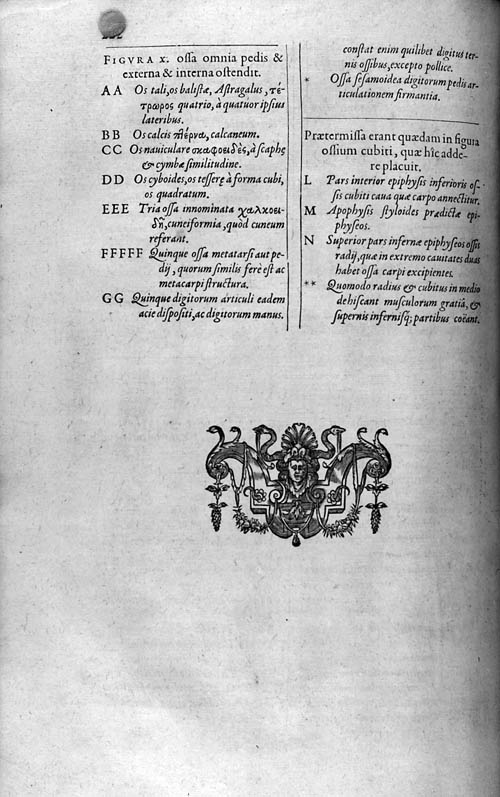 FIGVRA X. ossa omnia pedis &
externa & interna ostendit.
A A Os tali, os balistæ, Astragalus, τέ-
τρωρος quatrio, à quatuor ipsius
lateribus.
B B Os calcis πτέρνα, calcaneum.
C C Os nauiculare σκαφοειδὲς, à scaphę
& cymbæ similitudine.
D D Os cyboides, os tesserę à forma cubi,
os quadratum.
E E E Tria ossa innominata χαλκοει-
δῆ, cuneiformia, quòd cuneum
referant.
F F F F F Quinque ossa metatarsi aut pe-
dij, quorum similis ferè est ac
metacarpi structura.
G G Quinque digitorum articuli eadem
acie dispositi, ac digitorum manus.
constat enim quilibet digitus ter-
nis ossibus, excepto pollice.
* Ossa sesamoidea digitorum pedis ar-
ticulationem firmantia.
Prætermissa erant quædam in figura
ossium cubiti, quæ hîc adde-
re placuit.
L Pars interior epiphysis inferioris os-
sis cubiti caua quæ carpo annectitur.
M Apophysis styloides prædictæ epi-
physeos.
N Superior pars infernæ epiphyseos ossis
radij, quæ in extremo cauitates duas
habet ossa carpi excipientes.
** Quomodo radius & cubitus in medio
dehiscant musculorum gratiâ, &
supernis infernisq; partibus coëant.